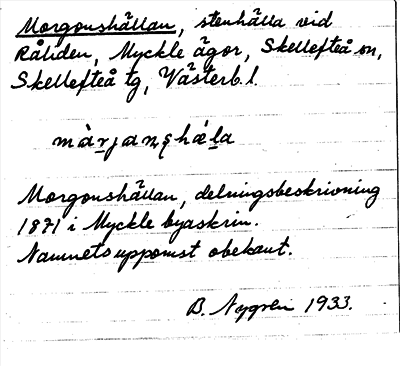 Morgonshällan, stenhälla vid
Råliden, Myckle ägor, Skellefteå sn,
Skellefteå tg, Västerb. l.
Morgonshällan, delningsbeskrivning
1871 i Myckle byaskrin.
Namnets uppomst obekant.
B. Nygren 1933.